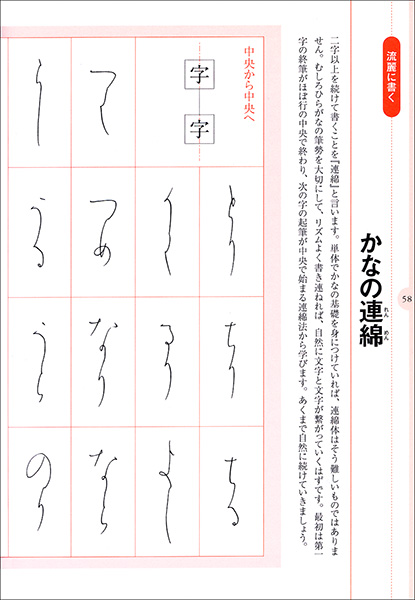 58
流麗に書く
かなの連綿
れん めん
二字以上を続けて書くことを『連綿』と言います。単体でかなの基礎を身につけていれば、連綿体はそう難しいものではありま
せん。むしろひらがなの筆勢を大切にして、リズムよく書き連ねれば、自然に文字と文字が繋がっていくはずです。最初は第一
字の終筆がほぼ行の中央で終わり、次の字の起筆が中央で始まる連綿法から学びます。あくまで自然に続けていきましょう。
中央から中央へ
字
字
とり
ちり
ちる
るり
よし
つめ
なり
なら
うし
うる
うら
のり